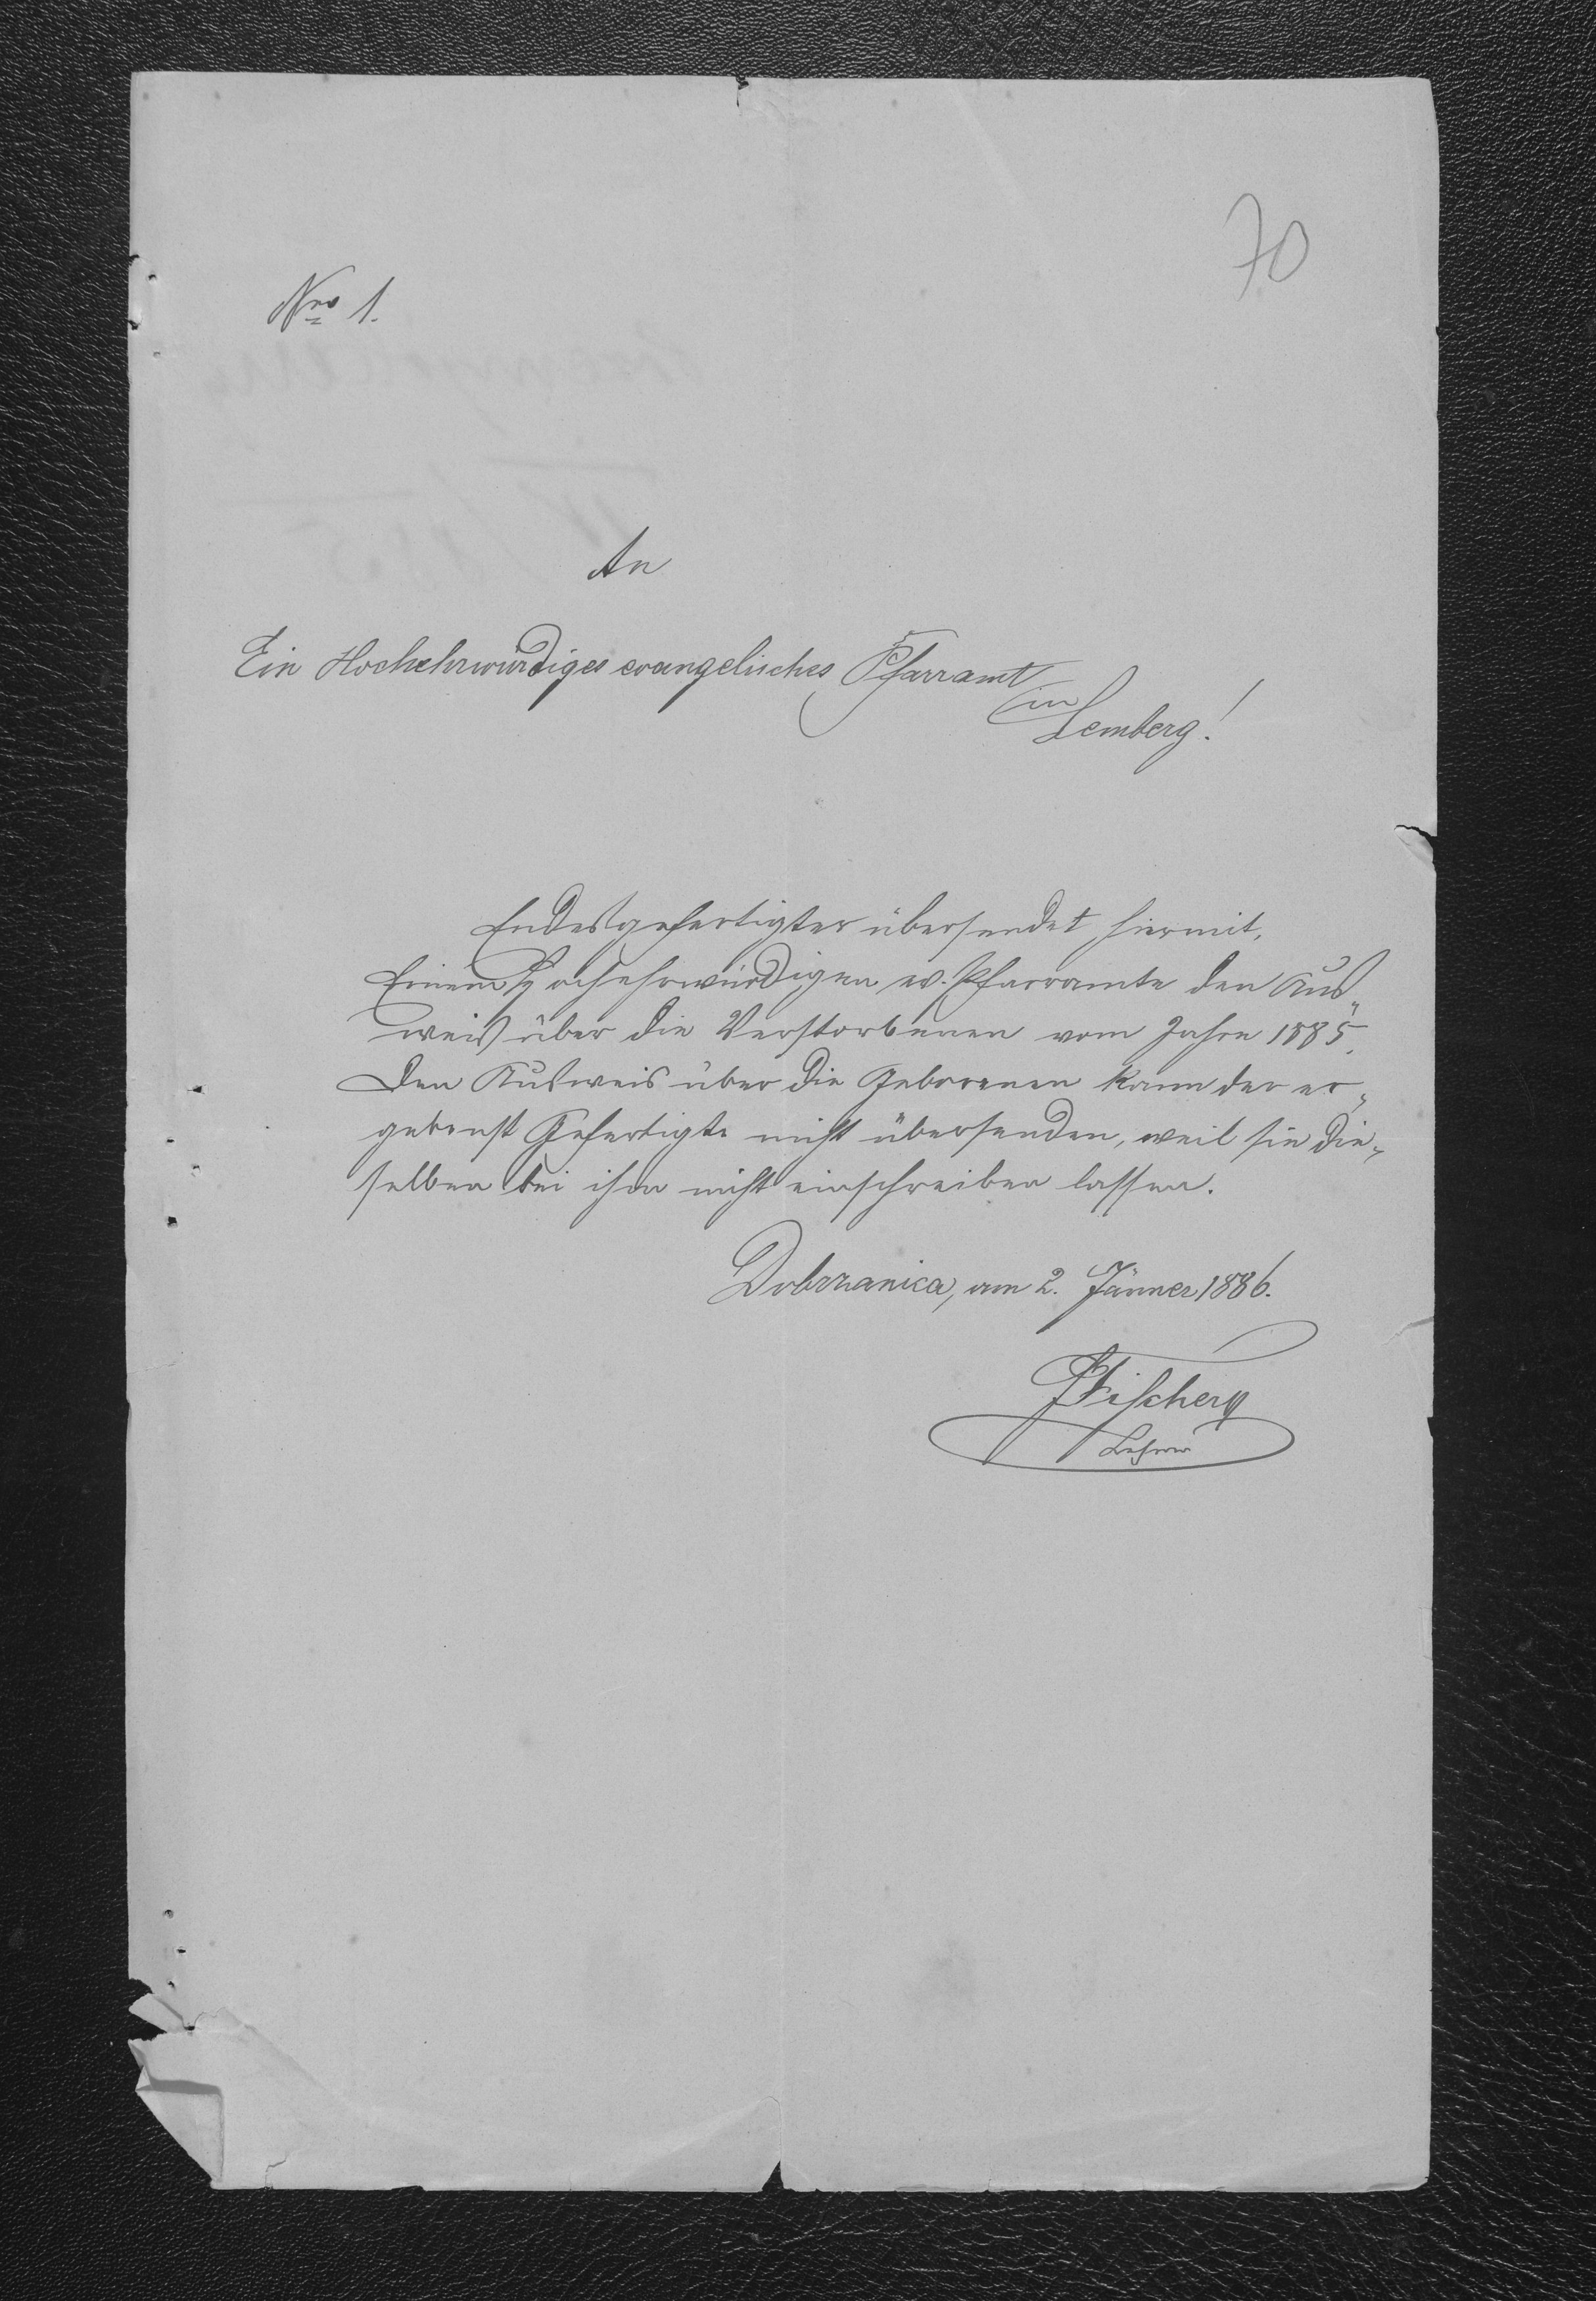 70
Nro 1.
An
Ein Hochehrwürdiges evangelisches Pfarramt
in
Lemberg!
Endesgefertigter übersendet hiermit,
Einem Hochehrwürdigen ev. Pfarramte den Aus„
weis über die Verstorbenen vom Jahre 1885.
Den Ausweis über die Geborenen kann der er„
gebenst Gefertigte nicht übersenden, weil sie die„
selben bei ihm nicht einschreiben lassen.
Dobrzanica, am 2. Jänner 1886.
Fischer
Lehrer